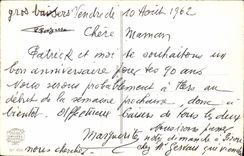 gros baisers Vendredi 10 Août 1962
Chère Maman
Patrick et moi te souhaitons un
bon anniversaire pour tes 90 ans
Nous serons probablement à
début de la semaine prochaine, donc à
bientôt. Affectueux baisers de tous les deux
Marguerite
nous
chez Mr Gervais qui vient
nous chercher